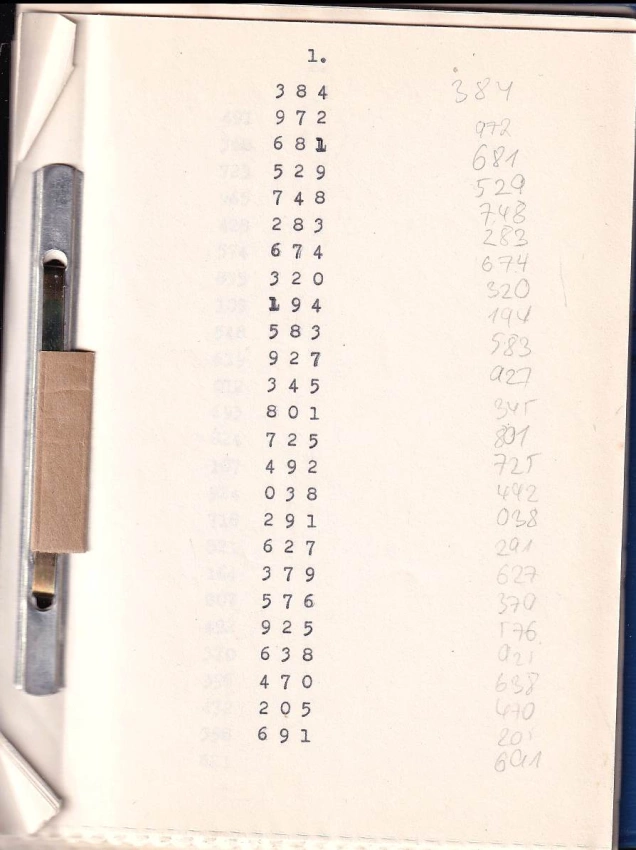 1.
384 384
972 972
681 681
529 529
748 748
283 283
674 674
320 320
194 194
583 583
927 927
345 345
801 801
725 725
492 492
038 038
291 291
627 627
379 379
576 576
925 925
638 638
470 470
205 205
691 691